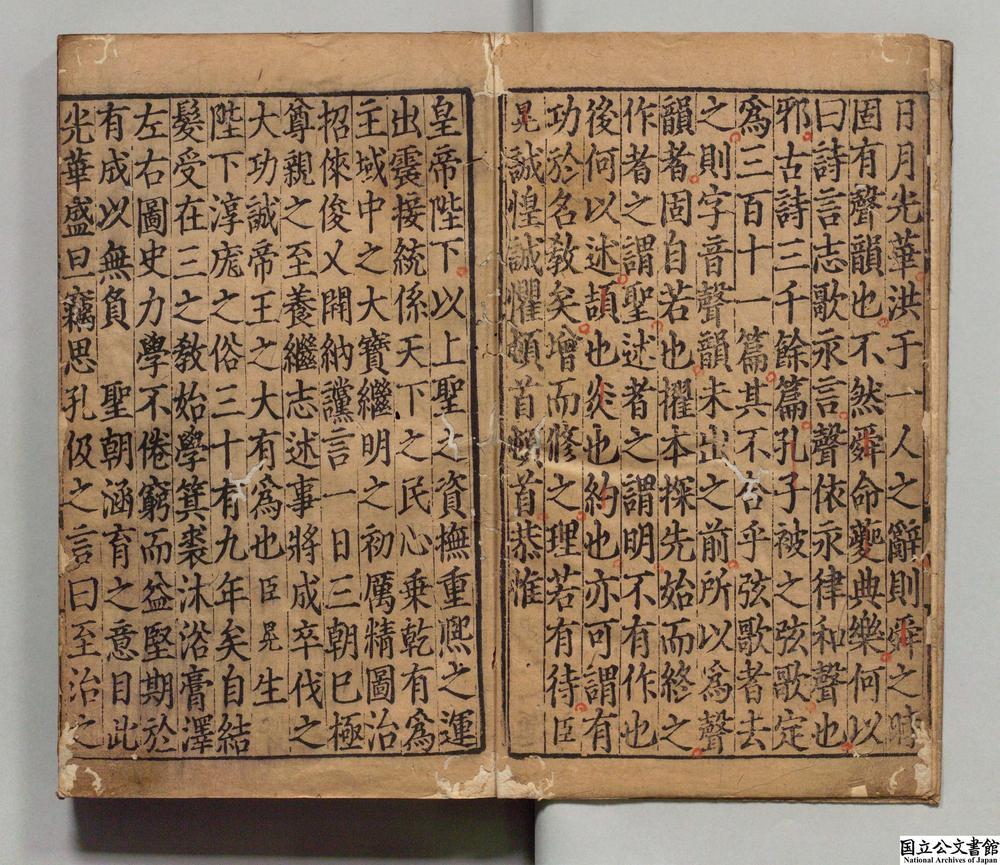 日月光華洪于一人之辭則舜之時
固有聲韻也不然舜命夔典樂何以
曰詩言志歌永言聲依永律和聲也
邪古詩三千餘篇孔子被之弦歌定
爲三百十一篇其不合乎弦歌者去
之則字音聲韻未出之前所以爲聲
韻者固自若也擢本探先始而終之
作者之謂聖述者之謂明不有作也
後何以述頡也炎也約也亦可謂有
功於名敎矣增而修之理若有待臣
晃誠惶誠懼頓首頓首恭惟
皇帝陛下以上聖之資撫重熙之運
出震接統係天下之民心乗乾有爲
主域中之大寶繼明之初厲精圖治
招倈俊乂開納讜言一日三朝已極
尊親之至養繼志述事將成卒伐之
大功誠帝王之大有爲也臣晃生
陛下淳庬之俗三十有九年矣自結
髮受在三之敎始學箕裘沐浴膏澤
左右圖史力學不倦窮而益堅期於
有成以無負 聖朝涵育之意目此
光華盛旦竊思孔伋之言曰至治之
国立公文書館
National Archives of Japan